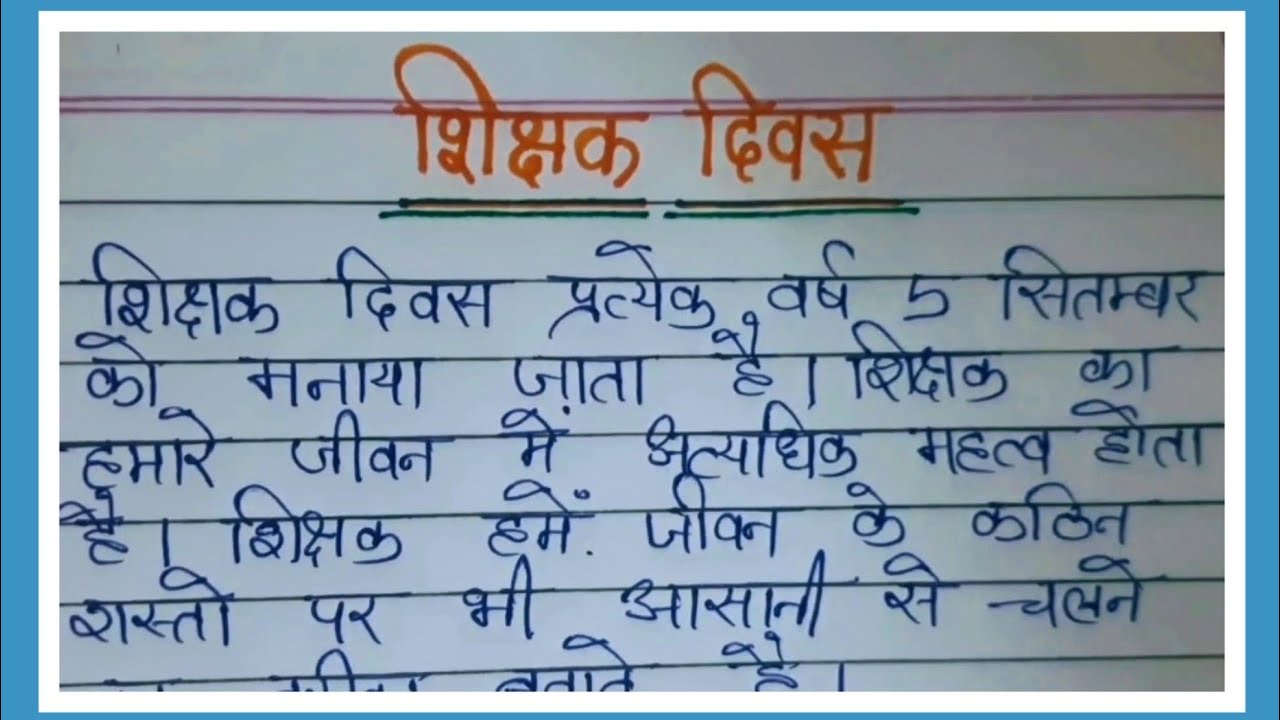 शिक्षक दिवस
शिक्षक दिवस प्रत्येक वर्ष 5 सितम्बर
को मनाया जाता है। शिक्षक का
हमारे जीवन में अत्यधिक महत्व होता
है। शिक्षक हमें जीवन के कठिन
रास्तो पर भी आसानी से चलने
बताते है।